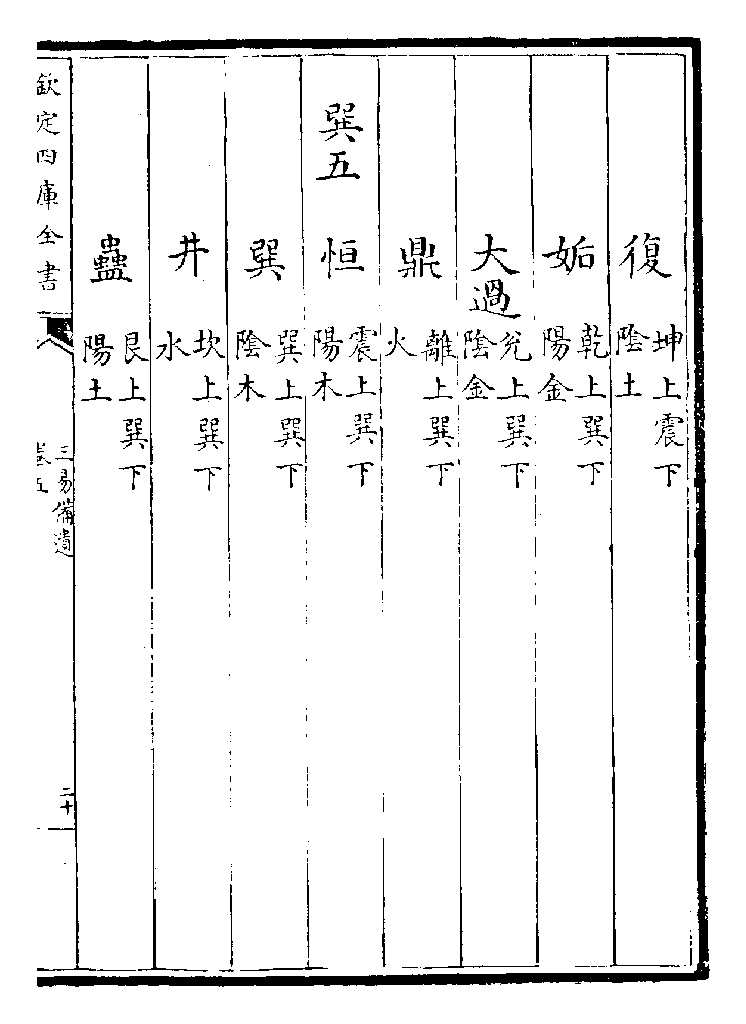 復 坤上震下 陰土
姤 乾上巽下 陽金
大過 兊上巽下 陰金
鼎 離上巽下 火
巽五 恒 震上巽下 陽木
巽 巽上巽下 陰木
井 坎上巽下 水
蠱 艮上巽下 陽土
欽定四庫全書
三易備遺
卷五
二十